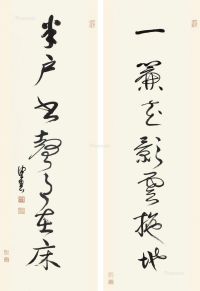 一簾花影雲拖地
半戶書聲月在床